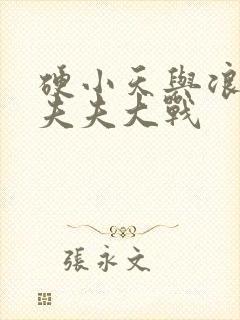 硬小天與浪
夫夫大戰
張永文